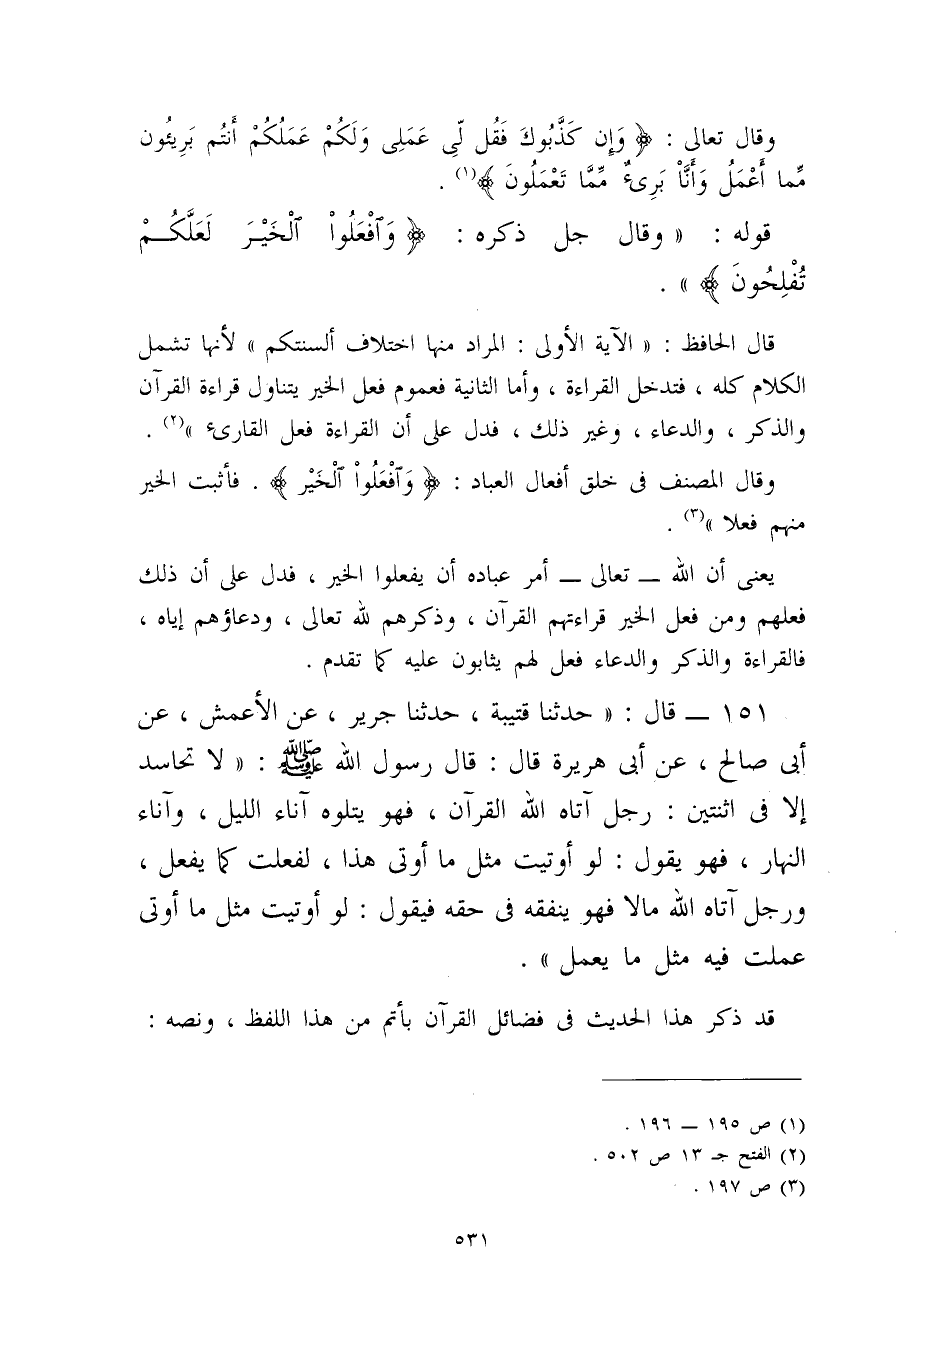 وقال تعالى : ﴿ وَإِن كَذَّبُوكَ فَقُل لِّي عَمَلِى وَلَكُمْ عَمَلُكُمْ أَنتُم بَرِيئُون
مِّما أَعْمَلُ وَأَنَاْ بَرِىءٌ مِّمَّا تَعْمَلُونَ ﴾(١) .
قوله : « وقال جل ذكره : ﴿ وَٱفْعَلُواْ ٱلْخَيْرَ لَعَلَّكُمْ
تُفْلِحُونَ ﴾ » .
قال الحافظ : « الآية الأولى : المراد منها اختلاف ألسنتكم » لأنها تشمل
الكلام كله ، فتدخل القراءة ، وأما الثانية فعموم فعل الخير يتناول قراءة القرآن
والذكر ، والدعاء ، وغير ذلك ، فدل على أن القراءة فعل القارىء »(٢) .
وقال المصنف فى خلق أفعال العباد : ﴿ وَٱفْعَلُواْ ٱلْخَيْر ﴾ . فأثبت الخير
منهم فعلا »(٣) .
يعنى أن الله ــ تعالى ــ أمر عباده أن يفعلوا الخير ، فدل على أن ذلك
فعلهم ومن فعل الخير قراءتهم القرآن ، وذكرهم لله تعالى ، ودعاؤهم إياه ،
فالقراءة والذكر والدعاء فعل لهم يثابون عليه كما تقدم .
١٥١ ــ قال : « حدثنا قتيبة ، حدثنا جرير ، عن الأعمش ، عن
أبى صالح ، عن أبى هريرة قال : قال رسول الله ﷺ : « لا تحاسد
إلا فى اثنتين : رجل آتاه الله القرآن ، فهو يتلوه آناء الليل ، وآناء
النهار ، فهو يقول : لو أوتيت مثل ما أوتى هذا ، لفعلت كما يفعل ،
ورجل آتاه الله مالا فهو ينفقه فى حقه فيقول : لو أوتيت مثل ما أوتى
عملت فيه مثل ما يعمل » .
قد ذكر هذا الحديث فى فضائل القرآن بأتم من هذا اللفظ ، ونصه :
(١) ص ١٩٥ ــ ١٩٦ .
(٢) الفتح جـ ١٣ ص ٥٠٢ .
(٣) ص ١٩٧ .
٥٣١